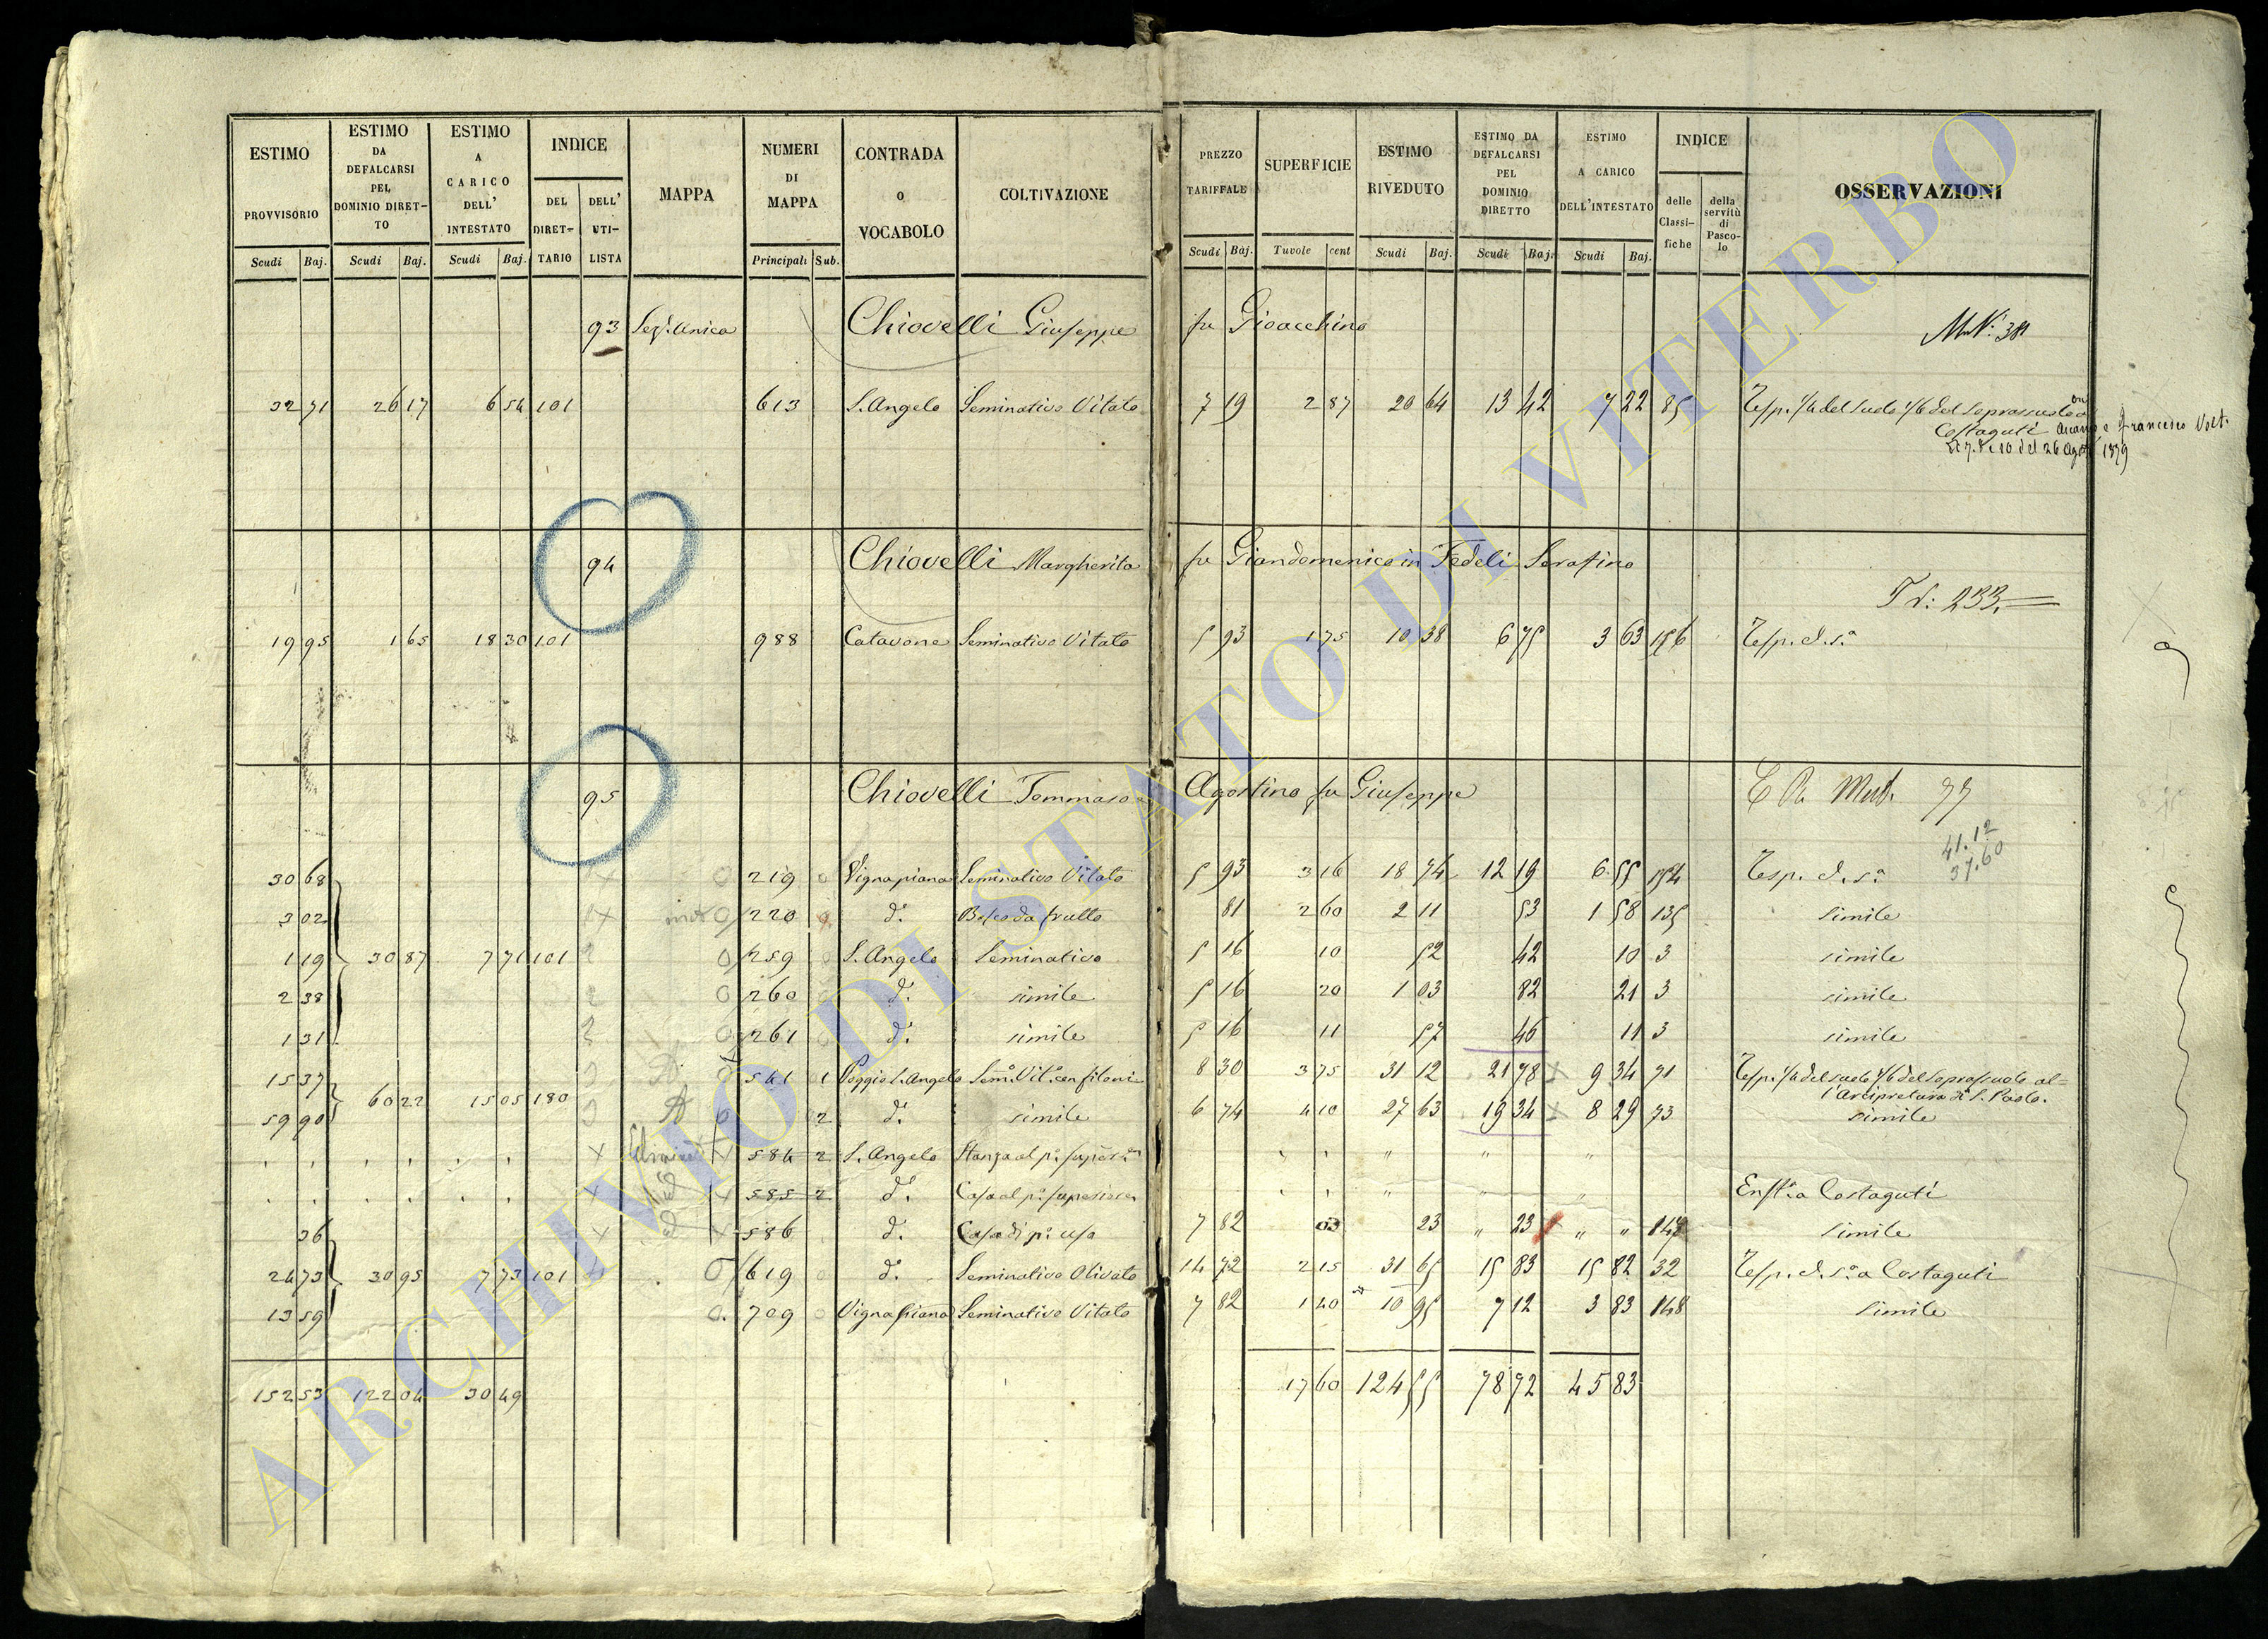 ESTIMO PROVVISORIO Scudi Baj.
ESTIMO DA DEFALCARSI PEL DOMINIO DIRETTO Scudi Baj.
ESTIMO A CARICO DELL' INTESTATO Scudi Baj.
INDICE DEL DIRET- TARIO DELL' UTI- LISTA
MAPPA
NUMERI DI MAPPA Principali Sub.
CONTRADA O VOCABOLO
COLTIVAZIONE
PREZZO TARIFFALE Scudi Baj.
SUPERFICIE Tavole cent
ESTIMO RIVEDUTO Scudi Baj.
ESTIMO DA DEFALCARSI PEL DOMINIO DIRETTO Scudi Baj.
ESTIMO A CARICO DELL'INTESTATO Scudi Baj.
INDICE delle Classi- fiche della servitù di Pasco- lo
OSSERVAZIONI
93 Sez. Unica Chiovelli Giuseppe fu Gioacchino
32 71 26 17 6 54 101 613 S. Angelo Seminativo Vitato 7 19 2 87 20 64 13 42 7 22 85 Resp. 1/4 del suolo 1/6 del soprassuolo a
Costaguti
94 Chiovelli Margherita fu Giandomenico in Fedeli Serafino
233
19 95 1 65 18 30 101 988 Catavone Seminativo Vitato 5 93 1 75 10 38 6 75 3 63 156 Resp. d. s.a
95 Chiovelli Tommaso e Agostino fu Giuseppe
77
41.12
37.60
30 68 219 Vigna piana Seminativo Vitato 5 93 3 16 18 74 12 19 6 55 154 Resp. d. s.a
3 02 220 d.o Bosco da frutto 81 2 60 2 11 53 1 58 135 simile
1 19 30 87 7 71 101 259 S. Angelo Seminativo 5 16 10 52 42 10 3 simile
2 38 260 d.o simile 5 16 20 1 03 82 21 3 simile
1 31 261 d.o simile 5 16 11 57 46 11 3 simile
15 37 541 1 Poggio S. Angelo Sem.o Vit.o con filoni 8 30 3 75 31 12 21 78 9 34 71 Resp. 1/4 del suolo 1/6 del soprassuolo al-
l'Arcipretura di S. Paolo.
59 90 60 22 15 05 180 2 d.o simile 6 74 4 10 27 63 19 34 8 29 73 simile
584 2 S. Angelo Stanza al p.o super.e
585 2 d.o Casa al p.o superiore Enft.a Costaguti
36 586 d.o Casa di p.o uso 7 82 03 23 " 23 " " 147 simile
24 73 30 95 7 73 101 619 d.o Seminativo Olivato 14 72 2 15 31 65 15 83 15 82 32 Resp. d. s.a a Costaguti
13 59 709 Vigna piana Seminativo Vitato 7 82 1 40 10 95 7 12 3 83 148 simile
152 53 122 04 30 49 17 60 124 55 78 72 45 83
ARCHIVIO DI STATO DI VITERBO